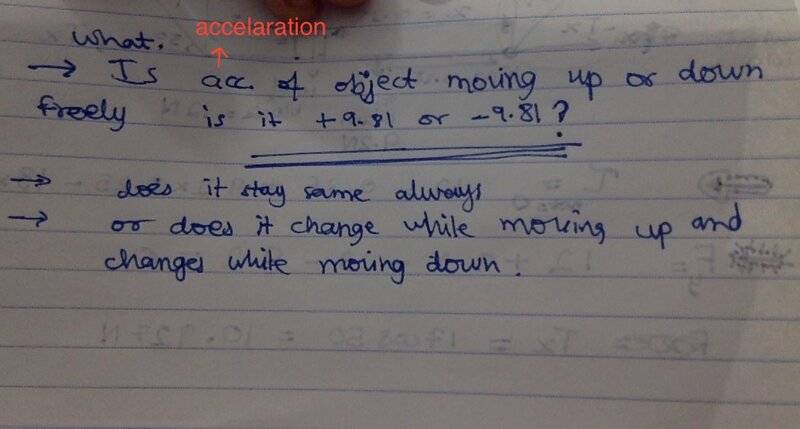 accelaration
what.
→ Is acc. of object moving up or down
freely is it +9.81 or -9.81?
→ does it stay same always
→ or does it change while moving up and
changes while moving down.